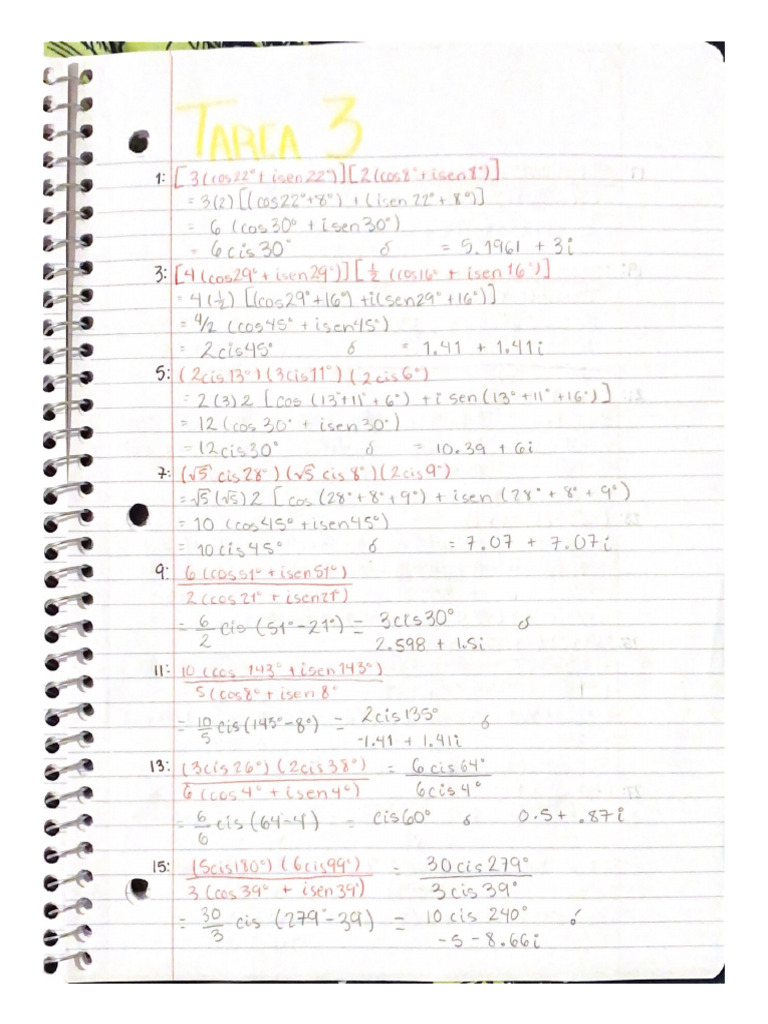 TAREA 3
1: [3(cos22°+isen22°)][2(cos8°+isen8°)]
= 3(2)[(cos22°+8°) + (isen22°+8°)]
= 6 (cos30° + isen30°)
= 6cis30° ó = 5.1961 + 3i
3: [4(cos29°+isen29°)][½ (cos16° + isen16°)]
= 4(½) [(cos29°+16°) +i(sen29°+16°)]
= 4/2 (cos45° + isen45°)
= 2cis45° ó = 1.41 + 1.41i
5: (2cis13°)(3cis11°)(2cis6°)
= 2(3)2 [cos (13°+11°+6°) + i sen(13°+11°+16°)]
= 12(cos 30° + isen30°)
= 12cis30° ó = 10.39 + 6i
7: (√5 cis28°)(√5 cis8°)(2cis9°)
= √5(√5)2 [cos (28°+8°+9°) + isen (28°+8°+9°)
= 10 (cos45° +isen45°)
= 10cis45° ó = 7.07 + 7.07i
9: 6(cos51°+isen51°)
2(cos21° + isen21°)
= 6/2 cis (51°-21°) = 3cis30° ó
2.598 + 1.5i
11: 10(cos 143° +isen143°)
5(cos8°+isen8°
= 10/5 cis(143°-8°) = 2cis135° ó
-1.41 + 1.41i
13: (3cis26°)(2cis38°) = 6cis64°
6(cos4° + isen4°) 6cis4°
= 6/6 cis(64-4) = cis60° ó 0.5+ .87i
15: (5cis180°)(6cis99°) = 30cis279°
3(cos39° + isen39°) 3cis39°
= 30/3 cis (279°-39) = 10cis 240° ó
-5-8.66i